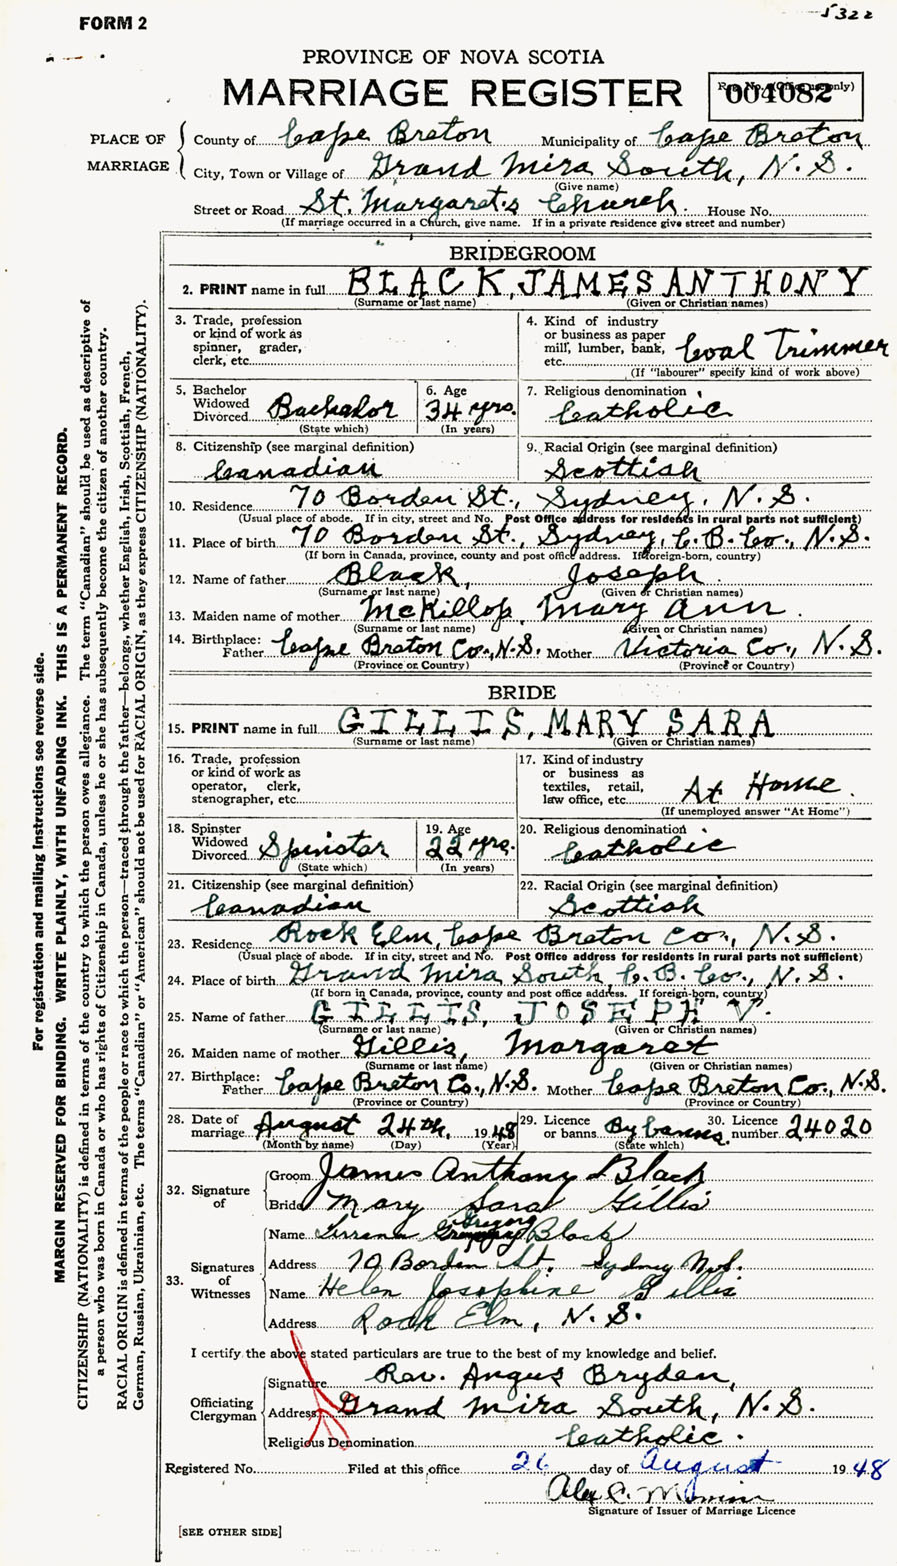 FORM 2
5322
PROVINCE OF NOVA SCOTIA
MARRIAGE REGISTER
Reg. No. (Office use only)
004082
PLACE OF MARRIAGE
County of Cape Breton Municipality of Cape Breton
City, Town or Village of Grand Mira South, N.S.
(Give name)
Street or Road St. Margaret's Church. House No.
(If marriage occurred in a Church, give name. If in a private residence give street and number)
BRIDEGROOM
2. PRINT name in full BLACK, JAMES ANTHONY
(Surname or last name) (Given or Christian names)
3. Trade, profession or kind of work as spinner, grader, clerk, etc.
4. Kind of industry or business as paper mill, lumber, bank, etc. Coal Trimmer
(If "labourer" specify kind of work above)
5. Bachelor Widowed Divorced Bachelor
(State which)
6. Age 34 yrs.
(In years)
7. Religious denomination Catholic
8. Citizenship (see marginal definition) Canadian
9. Racial Origin (see marginal definition) Scottish
10. Residence 70 Borden St., Sydney, N.S.
(Usual place of abode. If in city, street and No. Post Office address for residents in rural parts not sufficient)
11. Place of birth 70 Borden St., Sydney, C.B. Co., N.S.
(If born in Canada, province, county and post office address. If foreign-born, country)
12. Name of father Black, Joseph.
(Surname or last name) (Given or Christian names)
13. Maiden name of mother McKillop, Mary Ann.
(Surname or last name) (Given or Christian names)
14. Birthplace: Father Cape Breton Co., N.S. Mother Victoria Co., N.S.
(Province or Country) (Province or Country)
BRIDE
15. PRINT name in full GILLIS, MARY SARA
(Surname or last name) (Given or Christian names)
16. Trade, profession or kind of work as operator, clerk, stenographer, etc.
17. Kind of industry or business as textiles, retail, law office, etc. At Home.
(If unemployed answer "At Home")
18. Spinster Widowed Divorced Spinster
(State which)
19. Age 22 yrs.
(In years)
20. Religious denomination Catholic
21. Citizenship (see marginal definition) Canadian
22. Racial Origin (see marginal definition) Scottish
23. Residence Rock Elm, Cape Breton Co., N.S.
(Usual place of abode. If in city, street and No. Post Office address for residents in rural parts not sufficient)
24. Place of birth Grand Mira South, C.B. Co., N.S.
(If born in Canada, province, county and post office address. If foreign-born, country)
25. Name of father GILLIS, JOSEPH V.
(Surname or last name) (Given or Christian names)
26. Maiden name of mother Gillis, Margaret
(Surname or last name) (Given or Christian names)
27. Birthplace: Father Cape Breton Co., N.S. Mother Cape Breton Co., N.S.
(Province or Country) (Province or Country)
28. Date of marriage August 24th, 1948
(Month by name) (Day) (Year)
29. Licence or banns By banns.
(State which)
30. Licence number 24020
32. Signature of
Groom James Anthony Black
Bride Mary Sara Gillis
33. Signatures of Witnesses
Name Gregory Black
Address 70 Borden St. Sydney N.S.
Name Helen Josephine Gillis
Address Rock Elm, N.S.
I certify the above stated particulars are true to the best of my knowledge and belief.
Officiating Clergyman
Signature Rev. Angus Bryden,
Address Grand Mira South, N.S.
Religious Denomination Catholic.
Registered No. Filed at this office 26 day of August 1948
Alex C.
Signature of Issuer of Marriage Licence
[SEE OTHER SIDE]
For registration and mailing instructions see reverse side.
MARGIN RESERVED FOR BINDING. WRITE PLAINLY, WITH UNFADING INK. THIS IS A PERMANENT RECORD.
CITIZENSHIP (NATIONALITY) is defined in terms of the country to which the person owes allegiance. The term "Canadian" should be used as descriptive of
a person who was born in Canada or who has rights of Citizenship in Canada, unless he or she has subsequently become the citizen of another country.
RACIAL ORIGIN is defined in terms of the people or race to which the person—traced through the father—belongs, whether English, Irish, Scottish, French,
German, Russian, Ukrainian, etc. The terms "Canadian" or "American" should not be used for RACIAL ORIGIN, as they express CITIZENSHIP (NATIONALITY).